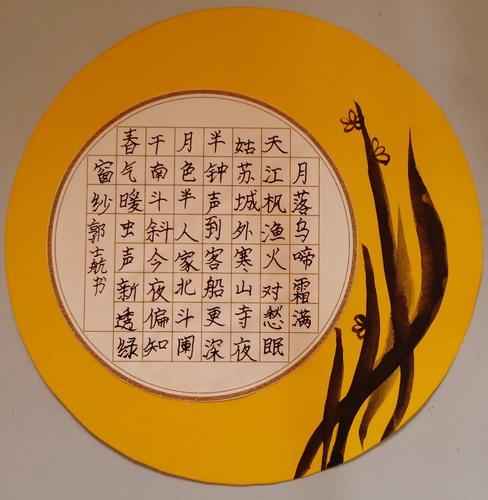 月落乌啼霜满
天江枫渔火对愁眠
姑苏城外寒山寺夜
半钟声到客船更深
月色半人家北斗阑
干南斗斜今夜偏知
春气暖虫声新透绿
窗纱 郭士航书